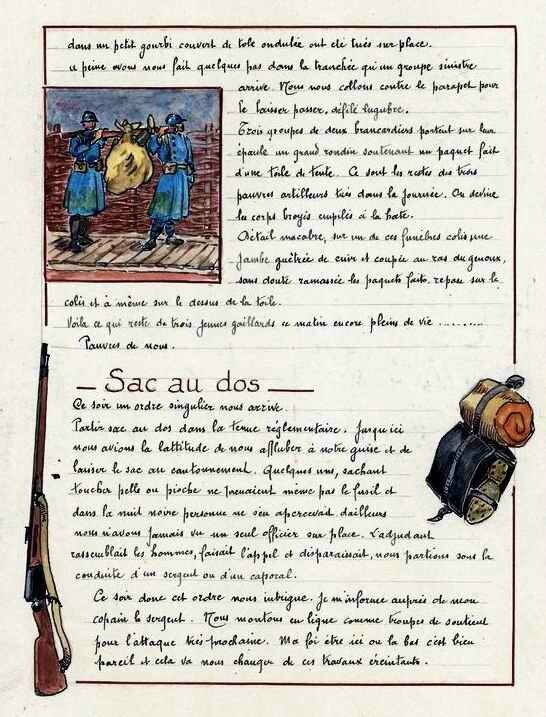 dans un petit gourbi couvert de tole ondulée ont été tués sur place.
a peine avons nous fait quelques pas dans la tranchée qu'un groupe sinistre
arrive. Nous nous collons contre le parapet pour
le laisser passer, défilé lugubre.
Trois groupes de deux brancardiers portent sur leur
épaule un grand rondin soutenant un paquet fait
d'une toile de tente. Ce sont les restes des trois
pauvres artilleurs tués dans la journée. On devine
les corps broyés empilés à la hate.
Détail macabre, sur un de ces funèbres colis une
jambe guêtrée de cuir et coupée au ras du genoux,
sans doute ramassée les paquets faits, repose sur le
colis et à même sur le dessus de la toile.
Voila ce qui reste de trois jeunes gaillards ce matin encore pleins de vie ..........
Pauvres de nous.
— Sac au dos —
Ce soir un ordre singulier nous arrive.
Partir sac au dos dans la tenue réglementaire. Jusqu'ici
nous avions la lattitude de nous affubler à notre guise et de
laisser le sac au cantonnement. Quelques uns, sachant
toucher pelle ou pioche ne prenaient même pas le fusil et
dans la nuit noire personne ne s'en apercevait d'ailleurs
nous n'avons jamais vu un seul officier sur place. L'adjudant
rassemblait les hommes, faisait l'appel et disparaissait, nous partions sous la
conduite d'un sergent ou d'un caporal.
Ce soir donc cet ordre nous intrigue. Je m'informe auprès de mon
copain le sergent. Nous montons en ligne comme troupes de soutient
pour l'attaque très-prochaine. Ma foi être ici ou la bas c'est bien
pareil et cela va nous changer de ces travaux éreintants.